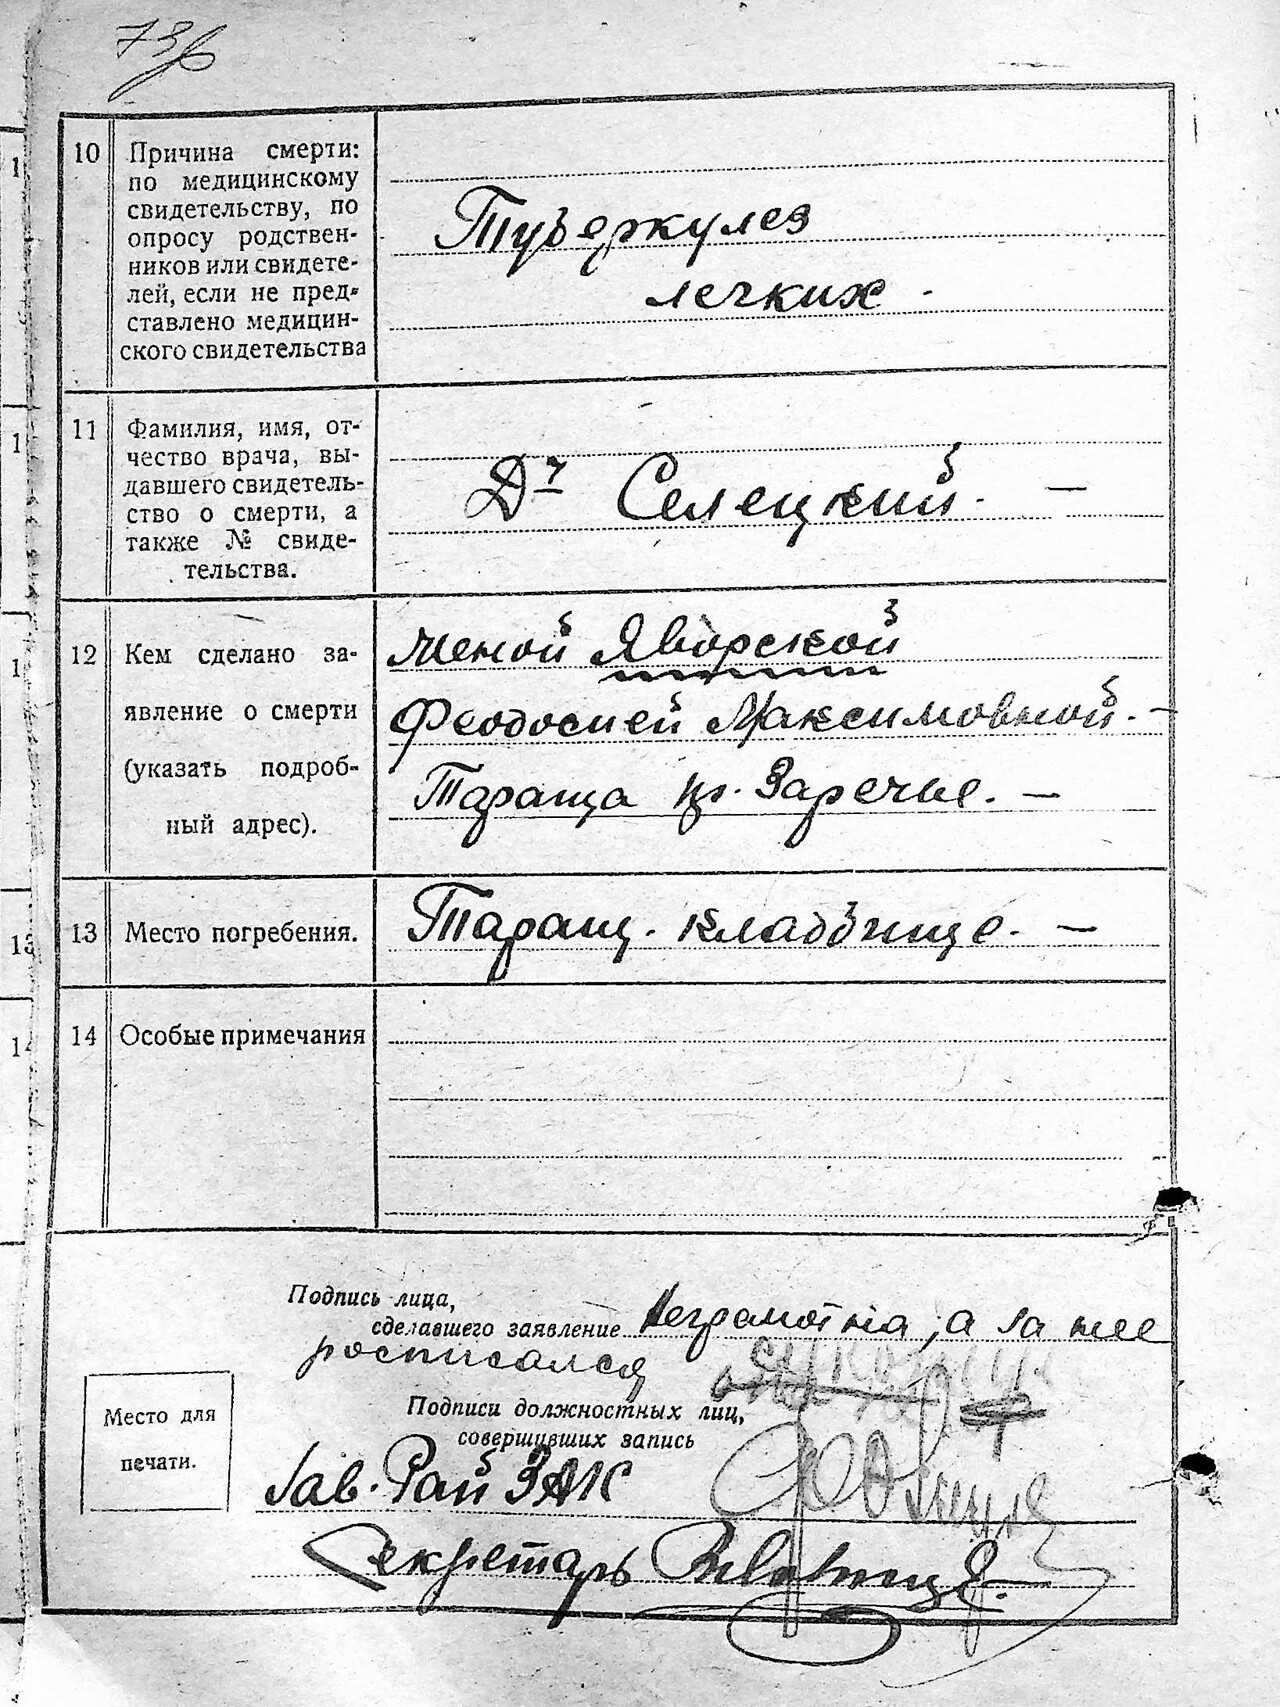 10 Причина смерти:
по медицинскому
свидетельству, по
опросу родствен-
ников или свидете-
лей, если не пред-
ставлено медицин-
ского свидетельства
Туберкулез
легких.
11 Фамилия, имя, от-
чество врача, вы-
давшего свидетель-
ство о смерти, а
также № свиде-
тельства.
Д-р Селецкий. —
12 Кем сделано за-
явление о смерти
(указать подроб-
ный адрес).
Женой Яворской
Феодосией Максимовной. —
Тараща ул. Заречье. —
13 Место погребения.
Таращ. кладбище. —
14 Особые примечания
Подпись лица,
сделавшего заявление неграмотна, а за нее
росписался
Подписи должностных лиц,
совершивших запись
Место для
печати.
Зав. Рай ЗАК
Секретарь